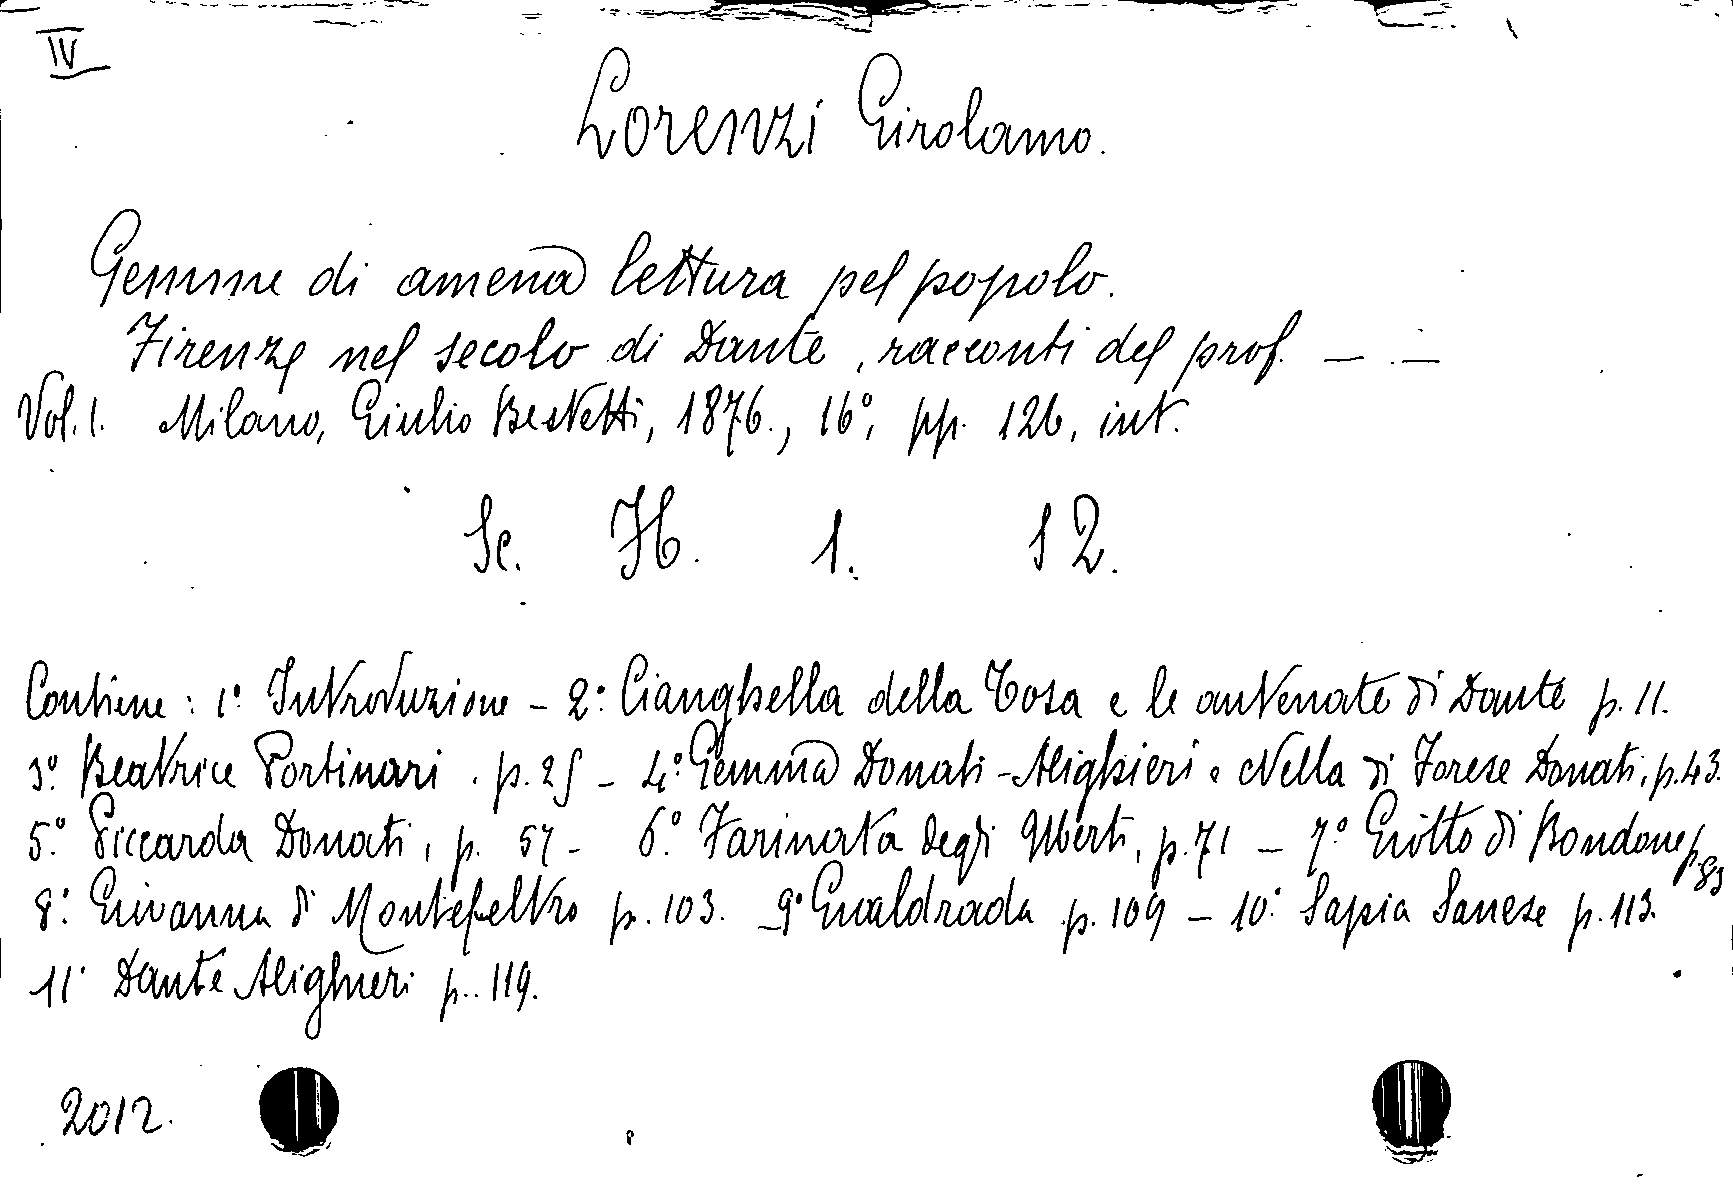 IV
Lorenzi Girolamo.
Gemme di amena lettura pel popolo.
Firenze nel secolo di Dante, racconti del prof. — —
Vol. 1. Milano, Giulio Bestetti, 1876., 16°, pp. 126, int.
Sc. H. 1. 12.
Contiene: 1° Introduzione - 2° Cianghella della Tosa e le antenate di Dante p. 11.
3° Beatrice Portinari. p. 25 - 4° Gemma Donati-Alighieri e Nella di Forese Donati, p. 43.
5° Piccarda Donati, p. 57 - 6° Farinata degli Uberti, p. 71 - 7° Giotto di Bondone p. 83
8° Giovanna di Montefeltro p. 103. - 9° Gualdrada p. 109 - 10° Sapia Sanese p. 113.
11° Dante Alighieri p. 119.
2012.